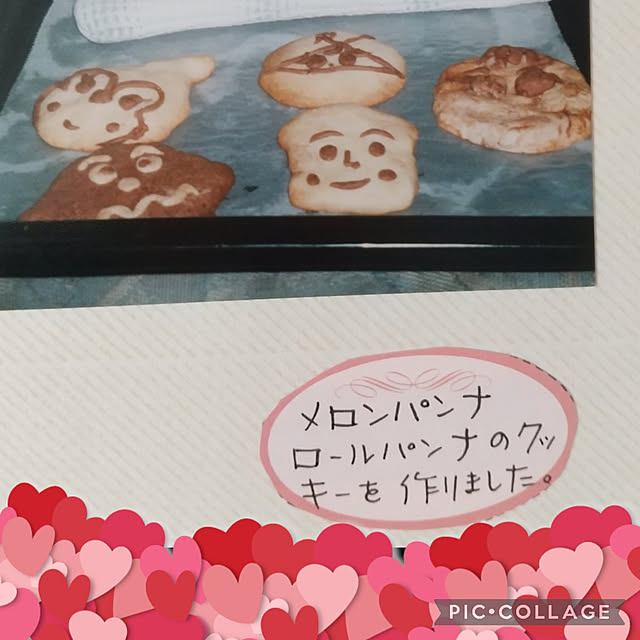 メロンパンナ
ロールパンナのクッ
キーを作りました。
PIC•COLLAGE